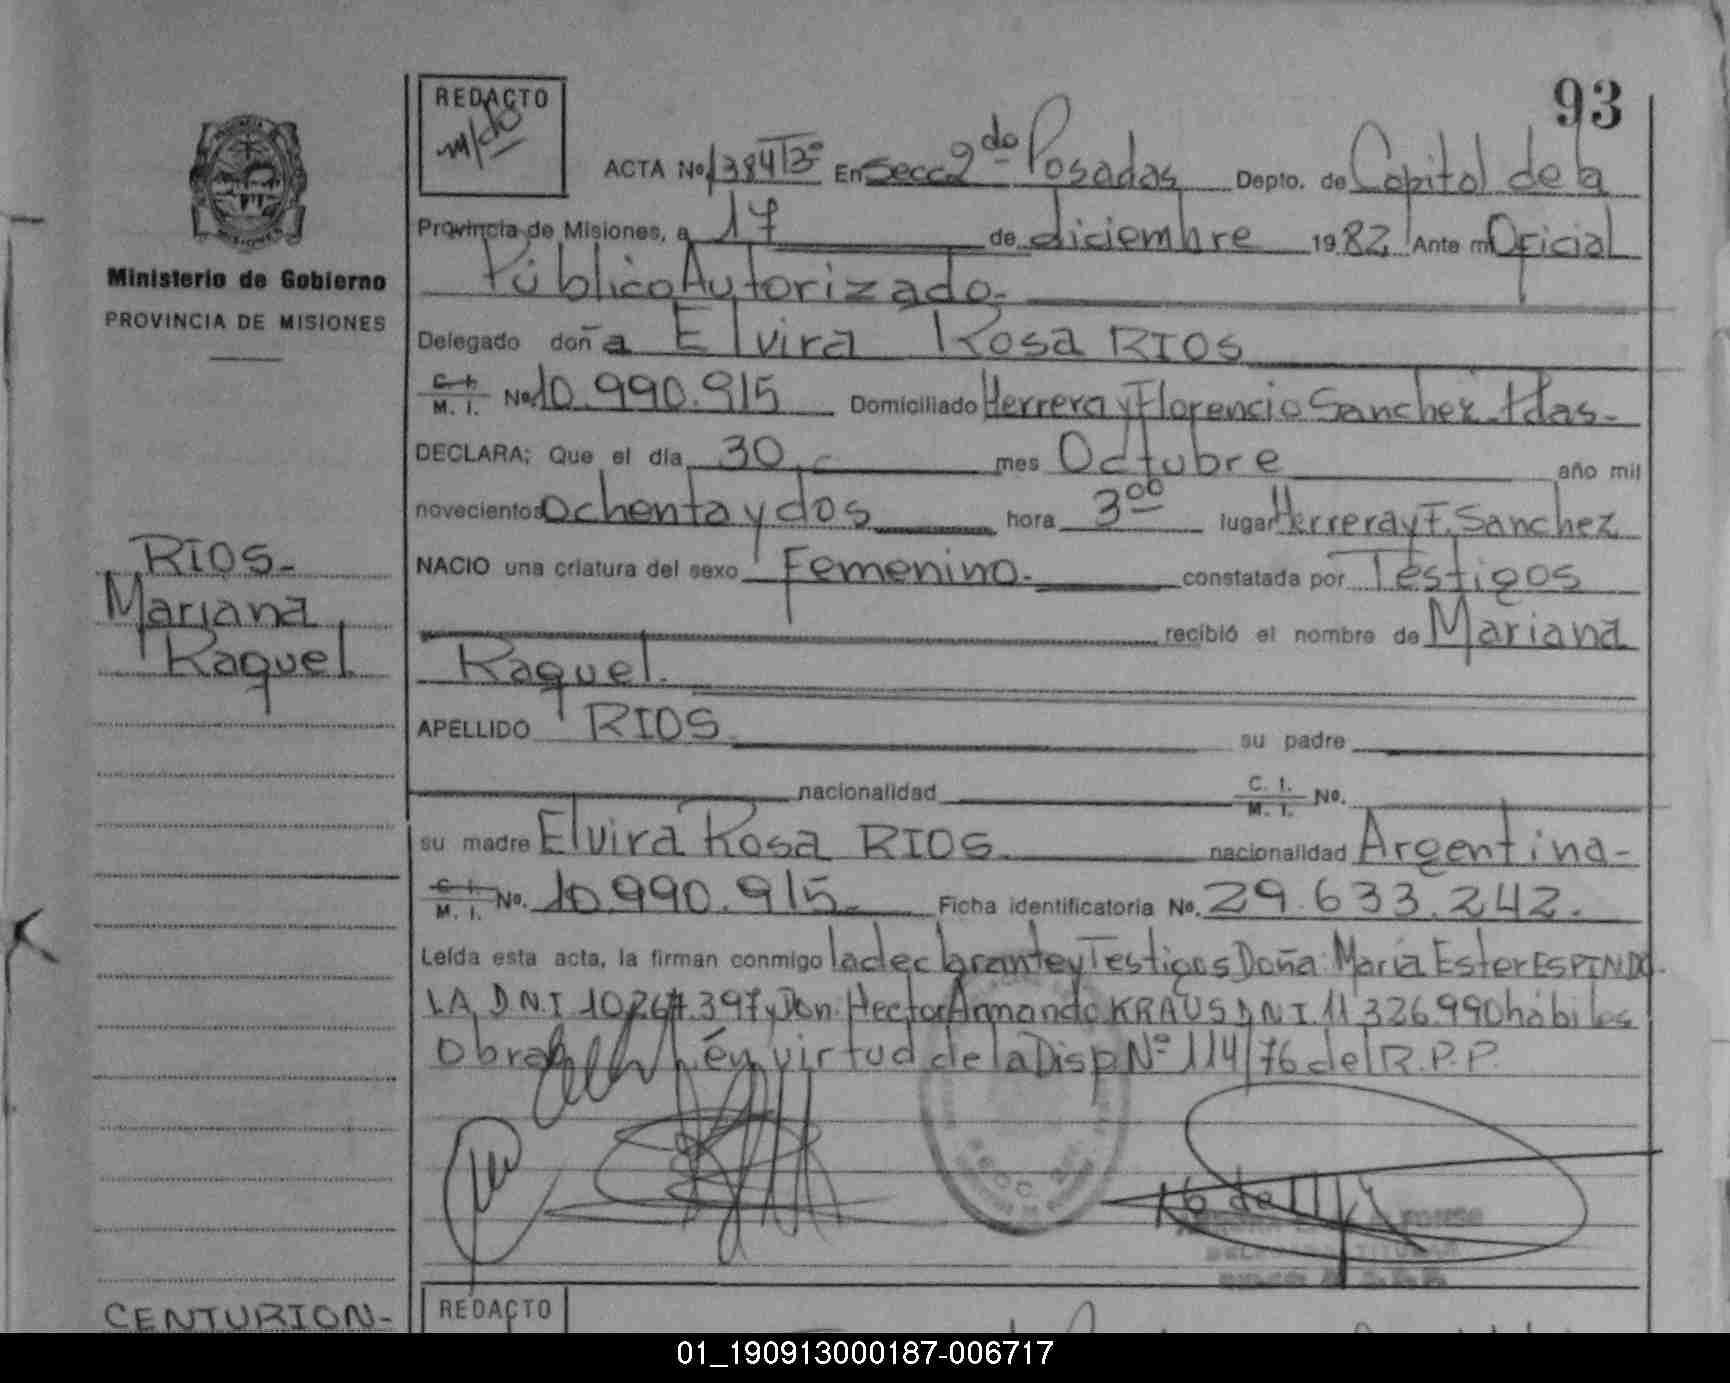 93
REDACTO
ACTA Nº 1384 Tº3º En Secc 2do Posadas Depto. de Capital de la
Provincia de Misiones, a 17 de diciembre 1982 Ante mi Oficial
Público Autorizado.-
Ministerio de Gobierno
PROVINCIA DE MISIONES
Delegado doña Elvira Rosa RIOS
C. I.
M. I. Nº 10.990.915 Domiciliado Herrera y Florencio Sanchez Pdas.-
DECLARA; Que el día 30 mes Octubre año mil
novecientos ochenta y dos hora 3 00 lugar Herrera y F. Sanchez
RIOS-
Mariana
Raquel
NACIO una criatura del sexo Femenino. constatada por Testigos
recibió el nombre de Mariana
Raquel.
APELLIDO RIOS su padre
nacionalidad C. I. M. I. Nº.
su madre Elvira Rosa RIOS nacionalidad Argentina-
C. I.
M. I. Nº. 10.990.915. Ficha identificatoria Nº. 29.633.242.
Leída esta acta, la firman conmigo la declarante y Testigos Doña María Ester ESPINDO
LA, D.N.I y Don Hector Armando KRAUS D.N.I. 11 326.990 hábiles
Obra en virtud de la Disp Nº 114/76 del R.P.P.
CENTURION-
REDACTO
01_190913000187-006717